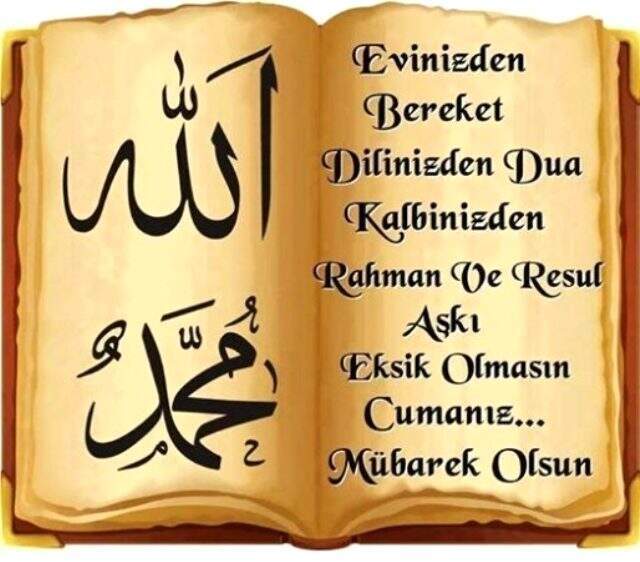 الله
محمد
Evinizden
Bereket
Dilinizden Dua
Kalbinizden
Rahman Ve Resul
Aşkı
Eksik Olmasın
Cumanız...
Mübarek Olsun